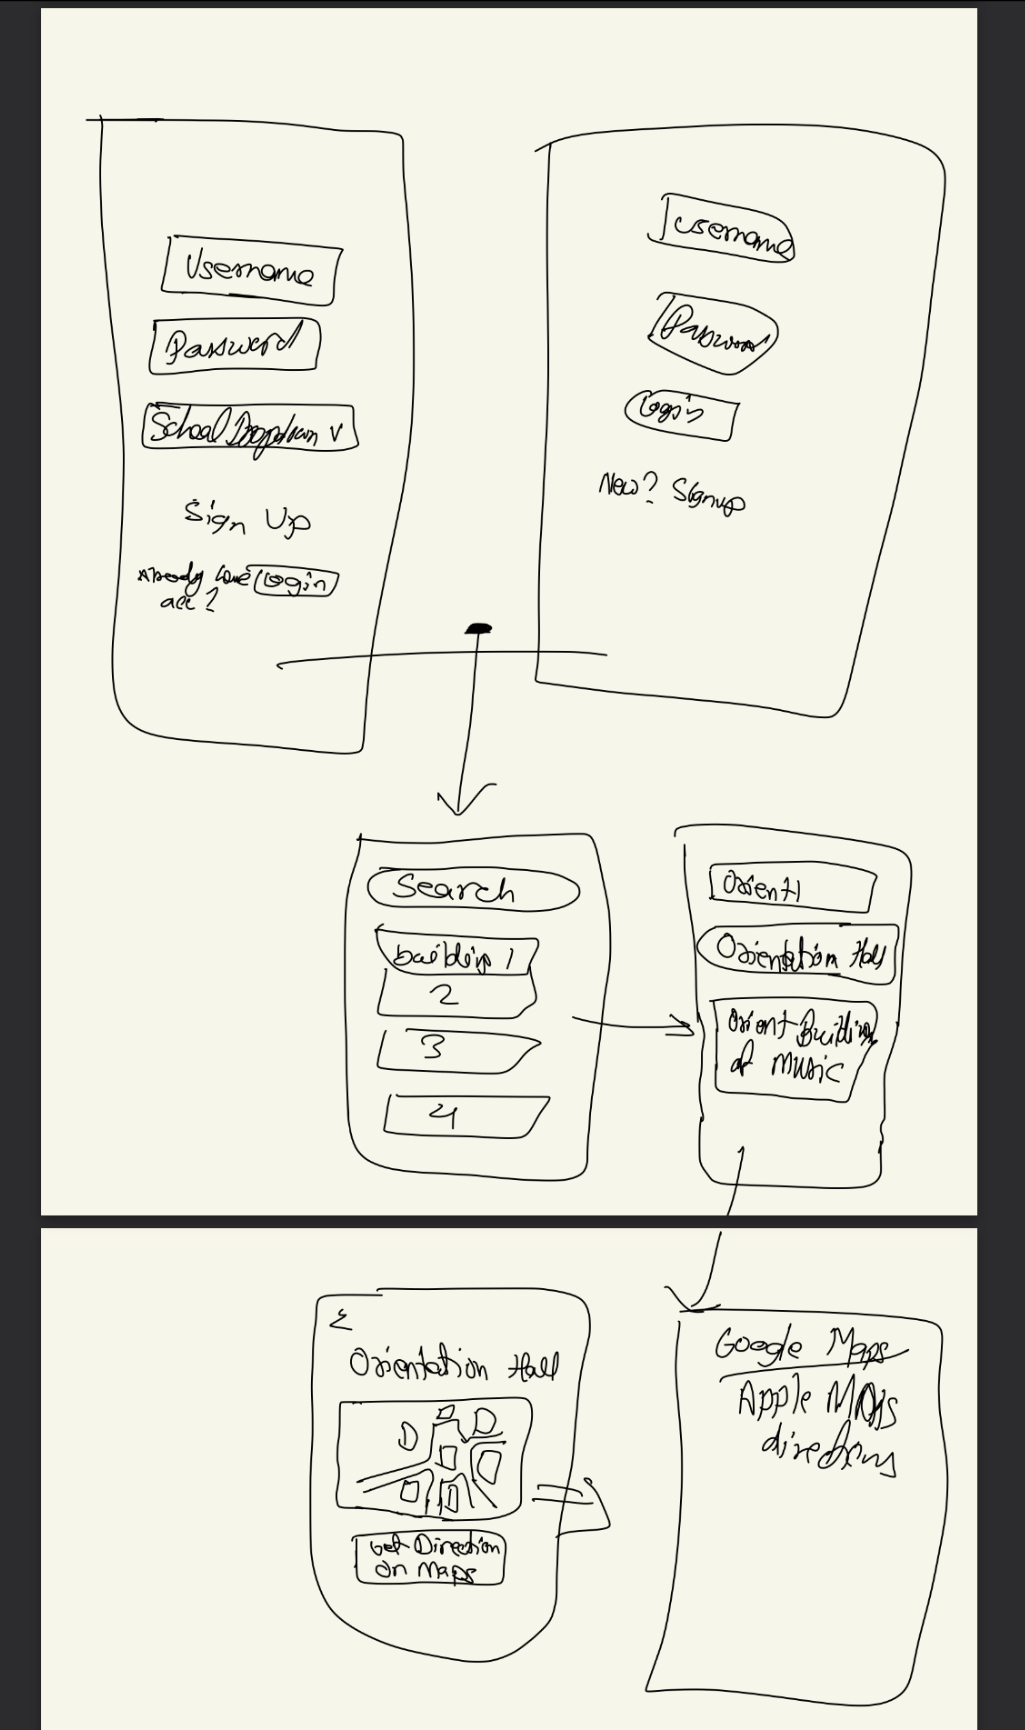 Username
Password
School Dropdown v
Sign Up
Already have Login
acc?
Username
Password
Login
New? Signup
Search
building 1
2
3
4
Orient|
Orientation Hall
Orient Building
of Music
Orientation Hall
Get Direction
on Maps
Google Maps
Apple Maps
directions